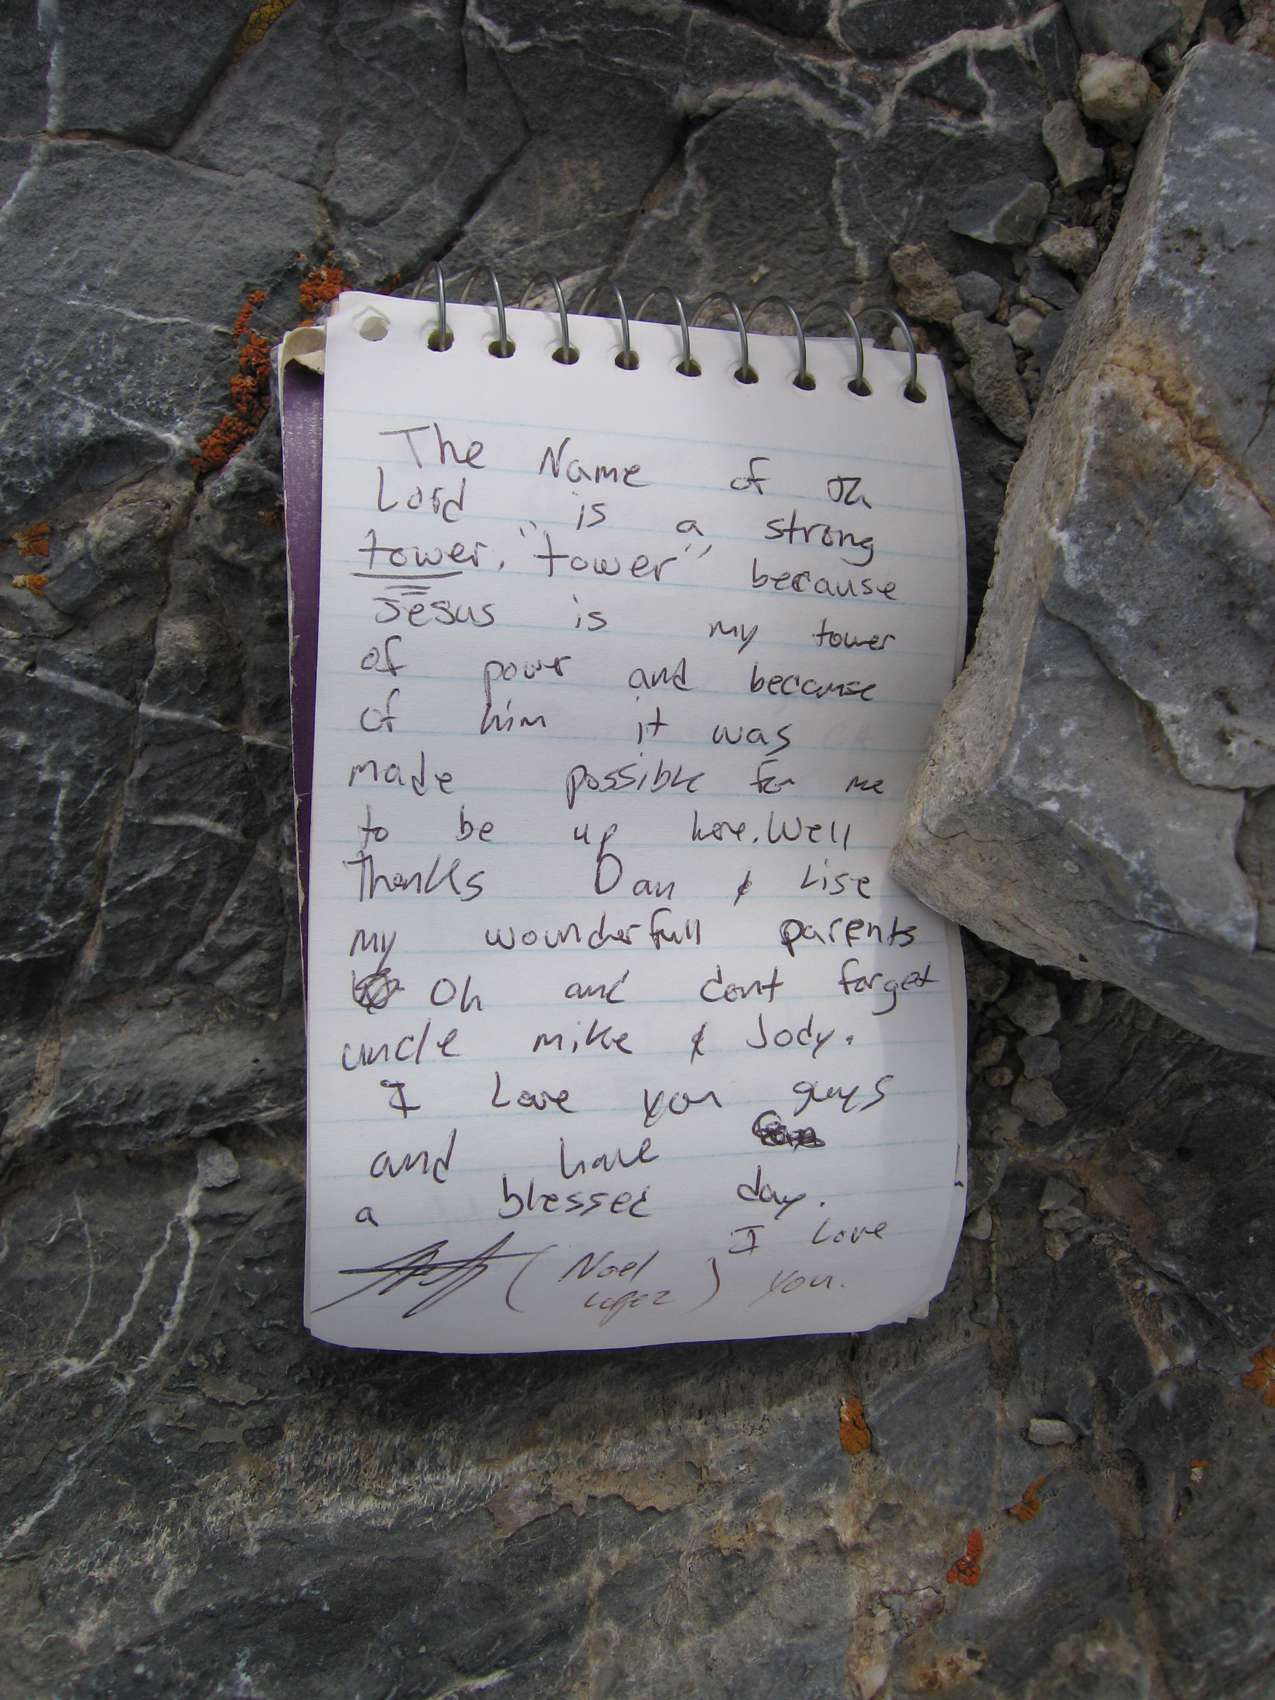 The Name of the
Lord is a strong
tower. "tower" because
Jesus is my tower
of power and because
of him it was
made possible for me
to be up here. Well
Thanks Dan & Lise
my wounderfull parents
Oh and dont forget
uncle mike & Jody.
I Love you guys
and have
a blessed day.
I Love
(Noel Lopez) you.